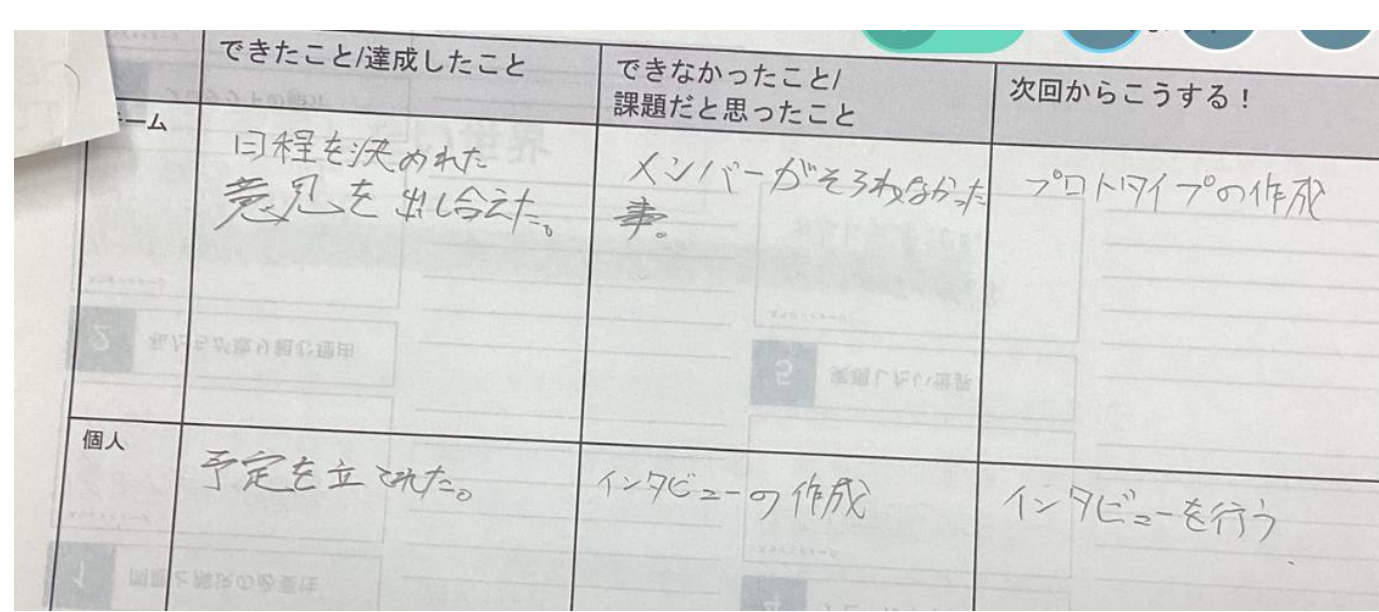 できたこと/達成したこと
できなかったこと/
課題だと思ったこと
次回からこうする!
ーム
日程を決めれた
意見を出し合えた。
メンバーがそろわなかった
事。
プロトタイプの作成
個人
予定を立てれた。
インタビューの作成
インタビューを行う